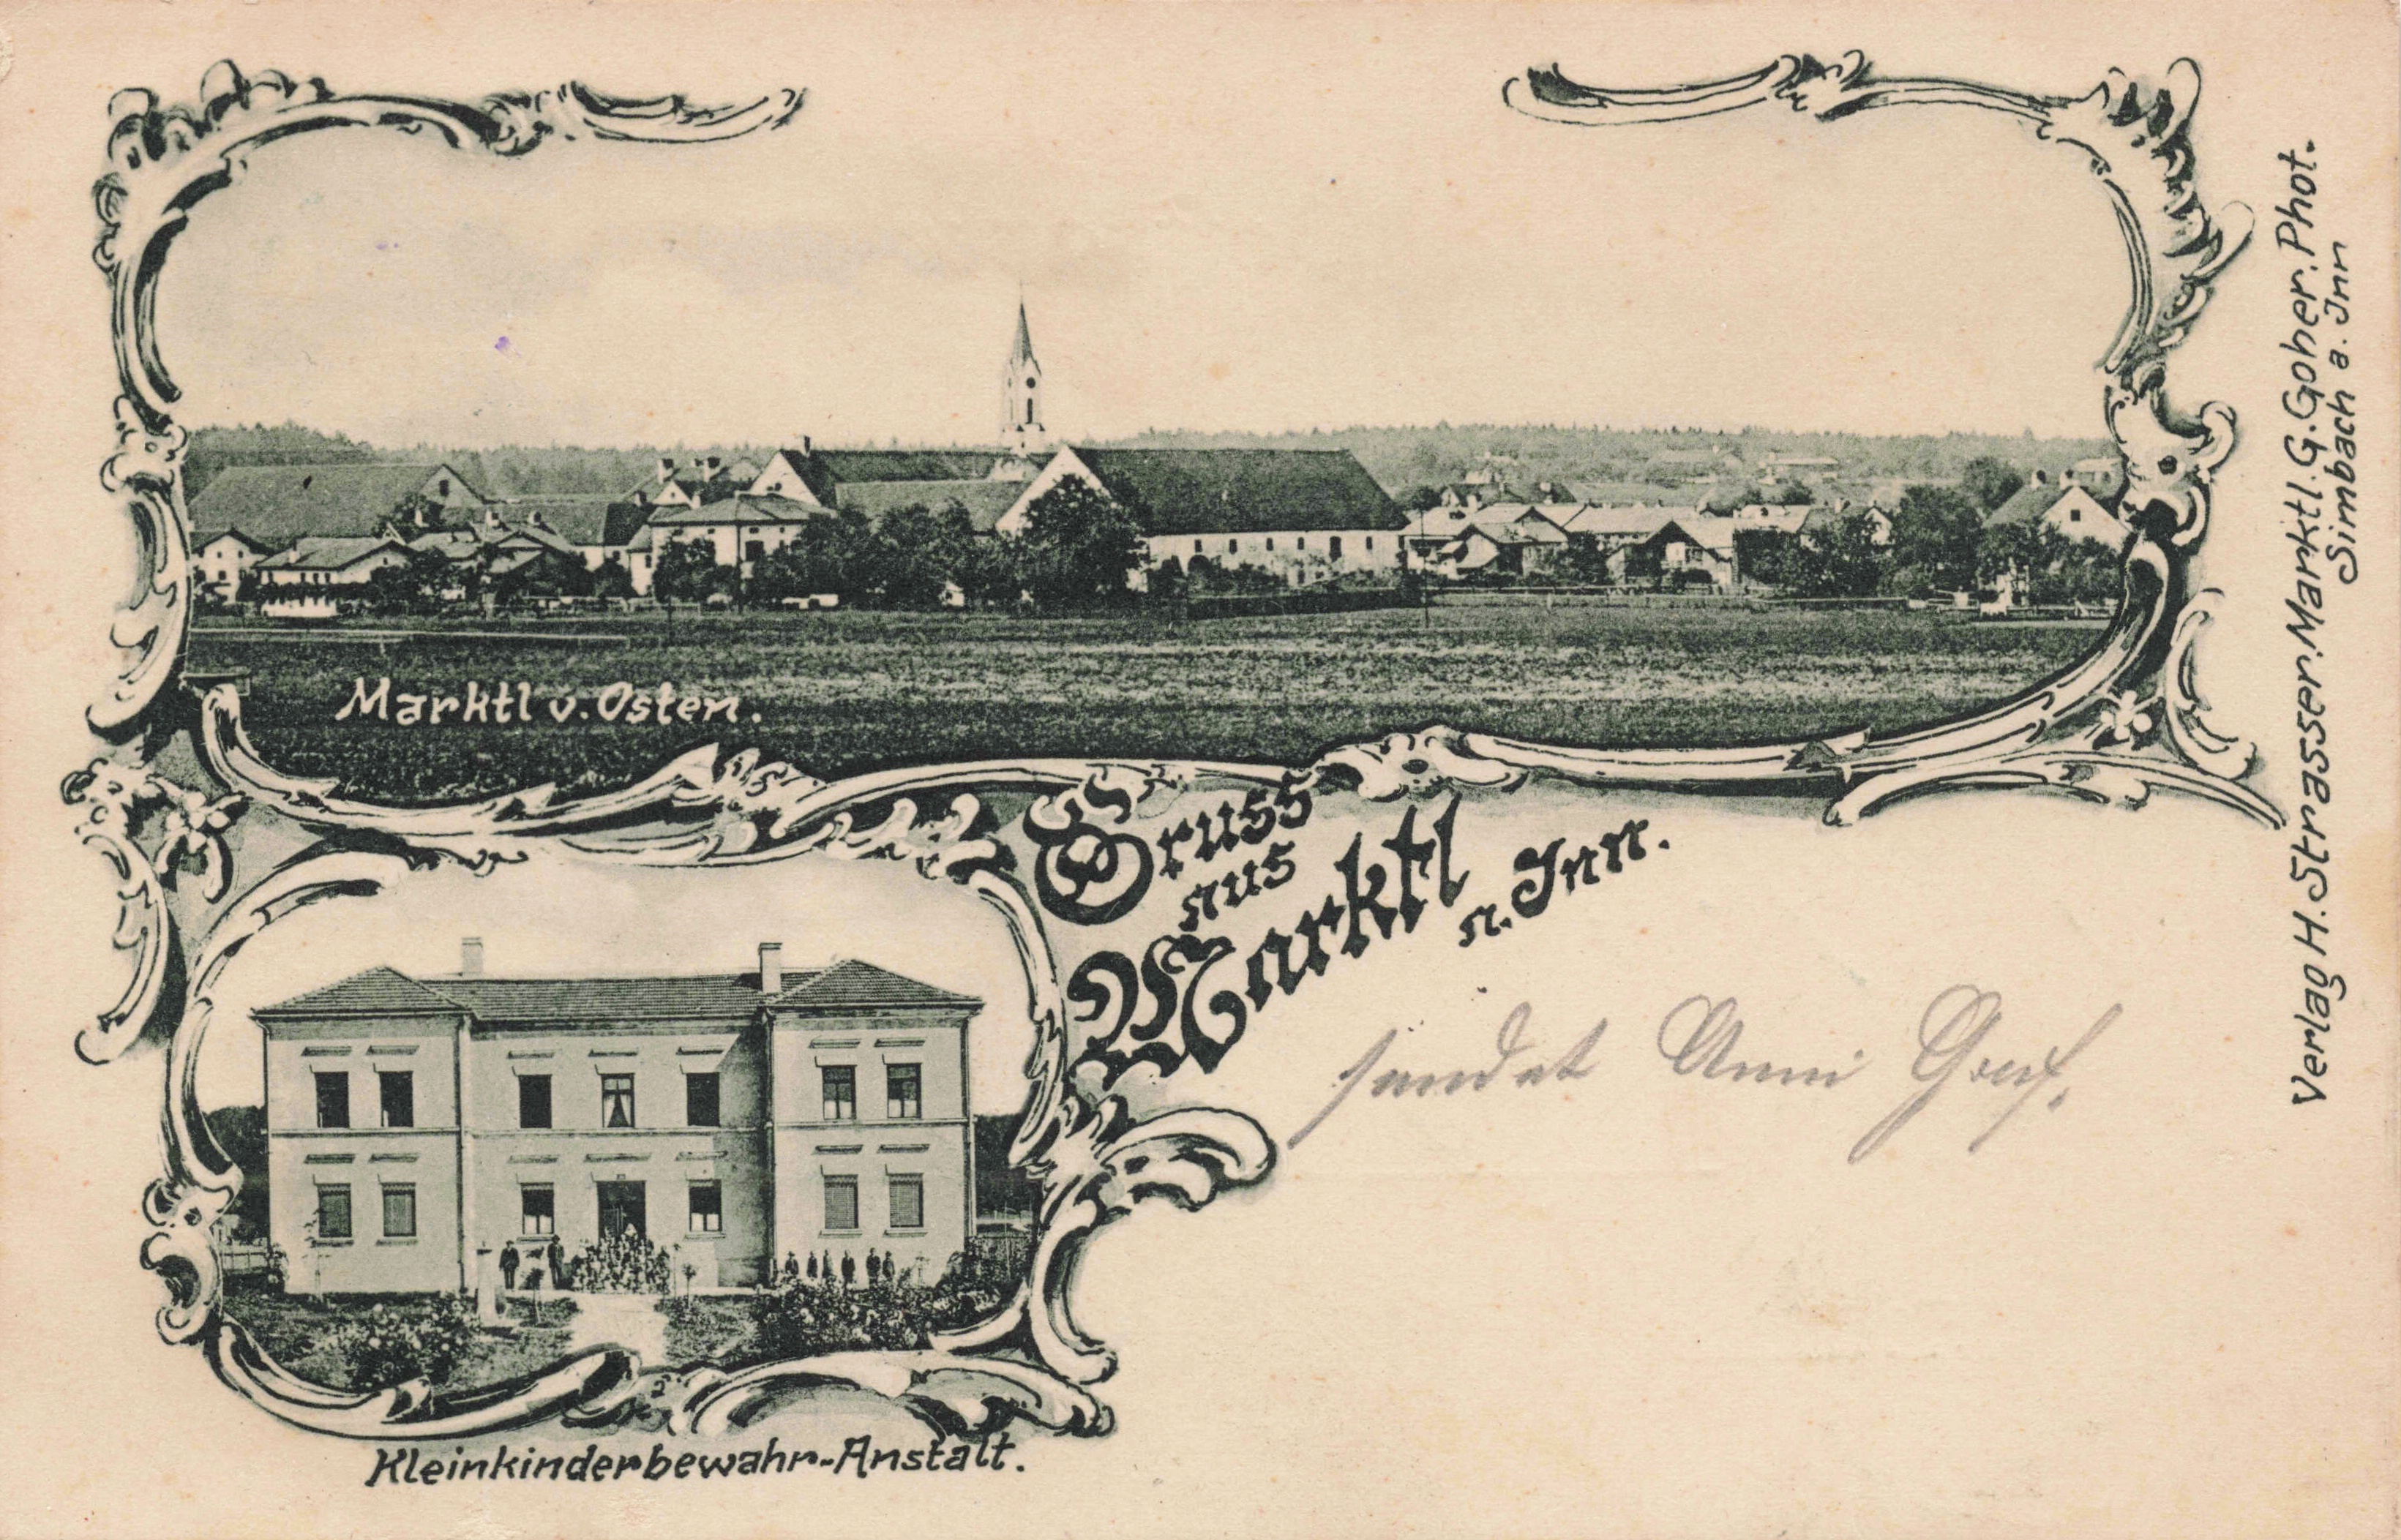 Marktl v. Osten.
Gruss
aus
Marktl
a. Inn.
sendet Anni Graf.
Kleinkinderbewahr-Anstalt.
Verlag H. Strasser. Marktl. G. Gober. Phot.
Simbach a. Inn